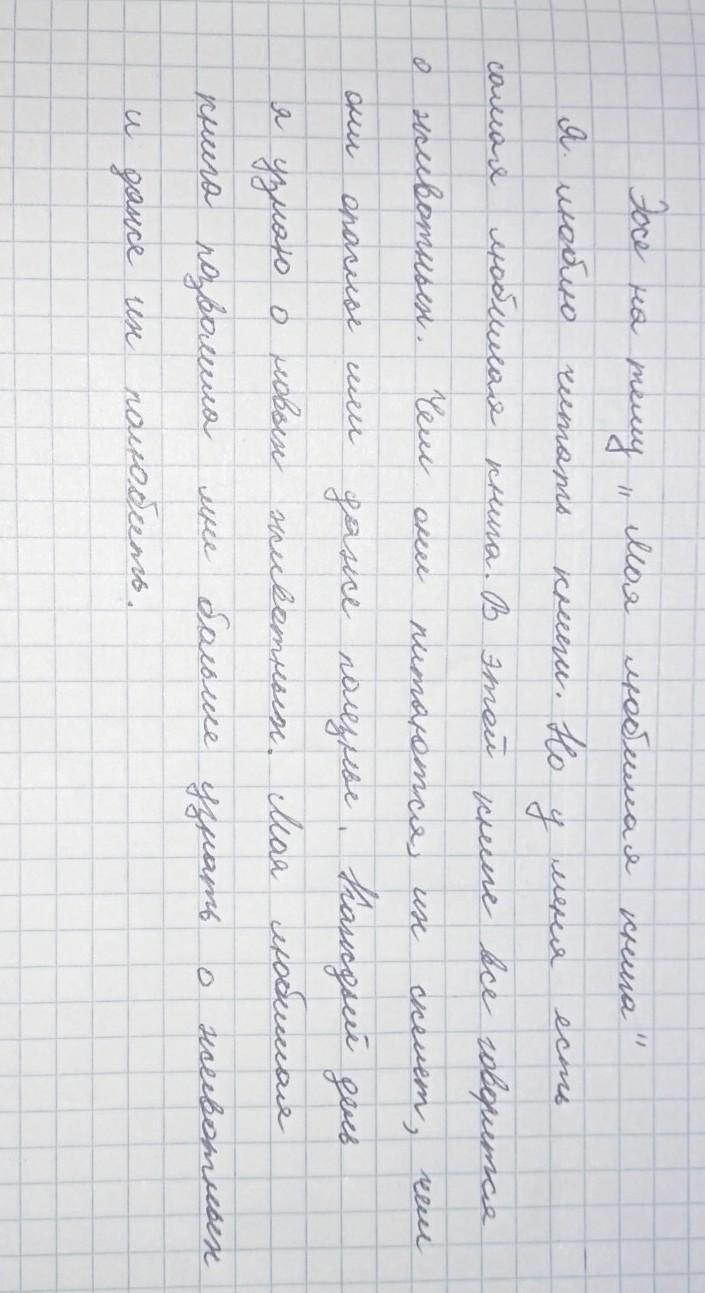 Эссе на тему "Моя любимая книга"
Я люблю читать книги. Но у меня есть
самая любимая книга. В этой книге все говорится
о животных. Чем они питаются, их скелет, чем
они опасные или даже полезные. Каждый день
я узнаю о новых животных. Моя любимая
книга позволила мне больше узнать о животных
и даже их полюбить.